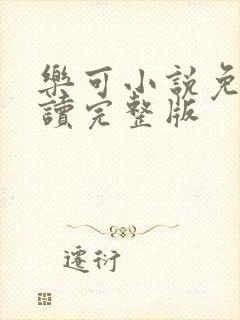 樂可小說免
讀完整版
遷衍